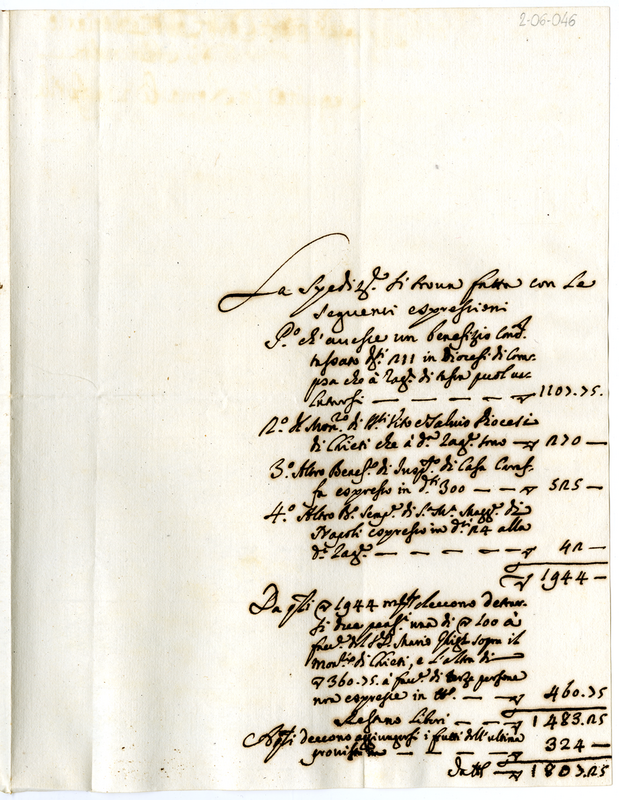 2-06-046
La Spediz.e si trova fatta con le
seguenti espressioni
P.o ch'avesse un benefizio
in Diocesi di Com:
psa che à rag.e di
1107.75.
2.o Il Mon.ro di Vito e Salvo Diocesi
di Chieti che à d.a rag.e sono 270
3.o Altro Benef.o di di Casa Caraf:
fa espresso in d.ti 300 — — 525 —
4.o Altro B.o Semp. di S.ta M.a Magg.e di
Napoli espresso in d.ti 24 alla
d.a rag.e — — — — 42 —
1944 —
Da q̃ti 1944 deevono detrar:
si due pens.i una di 100 à
fav.e del S.r D. Mario sopra il
Mon.ro di Chieti, e l'altra di
360.75. à fav.e di terze persone
non espresse in — — 460.75
Restano liberi — — 1483.25
A q̃ti deevono aggiungersi i frutti dell'ultima
provista — — — 324 —
In t̃t̃o 1807.25